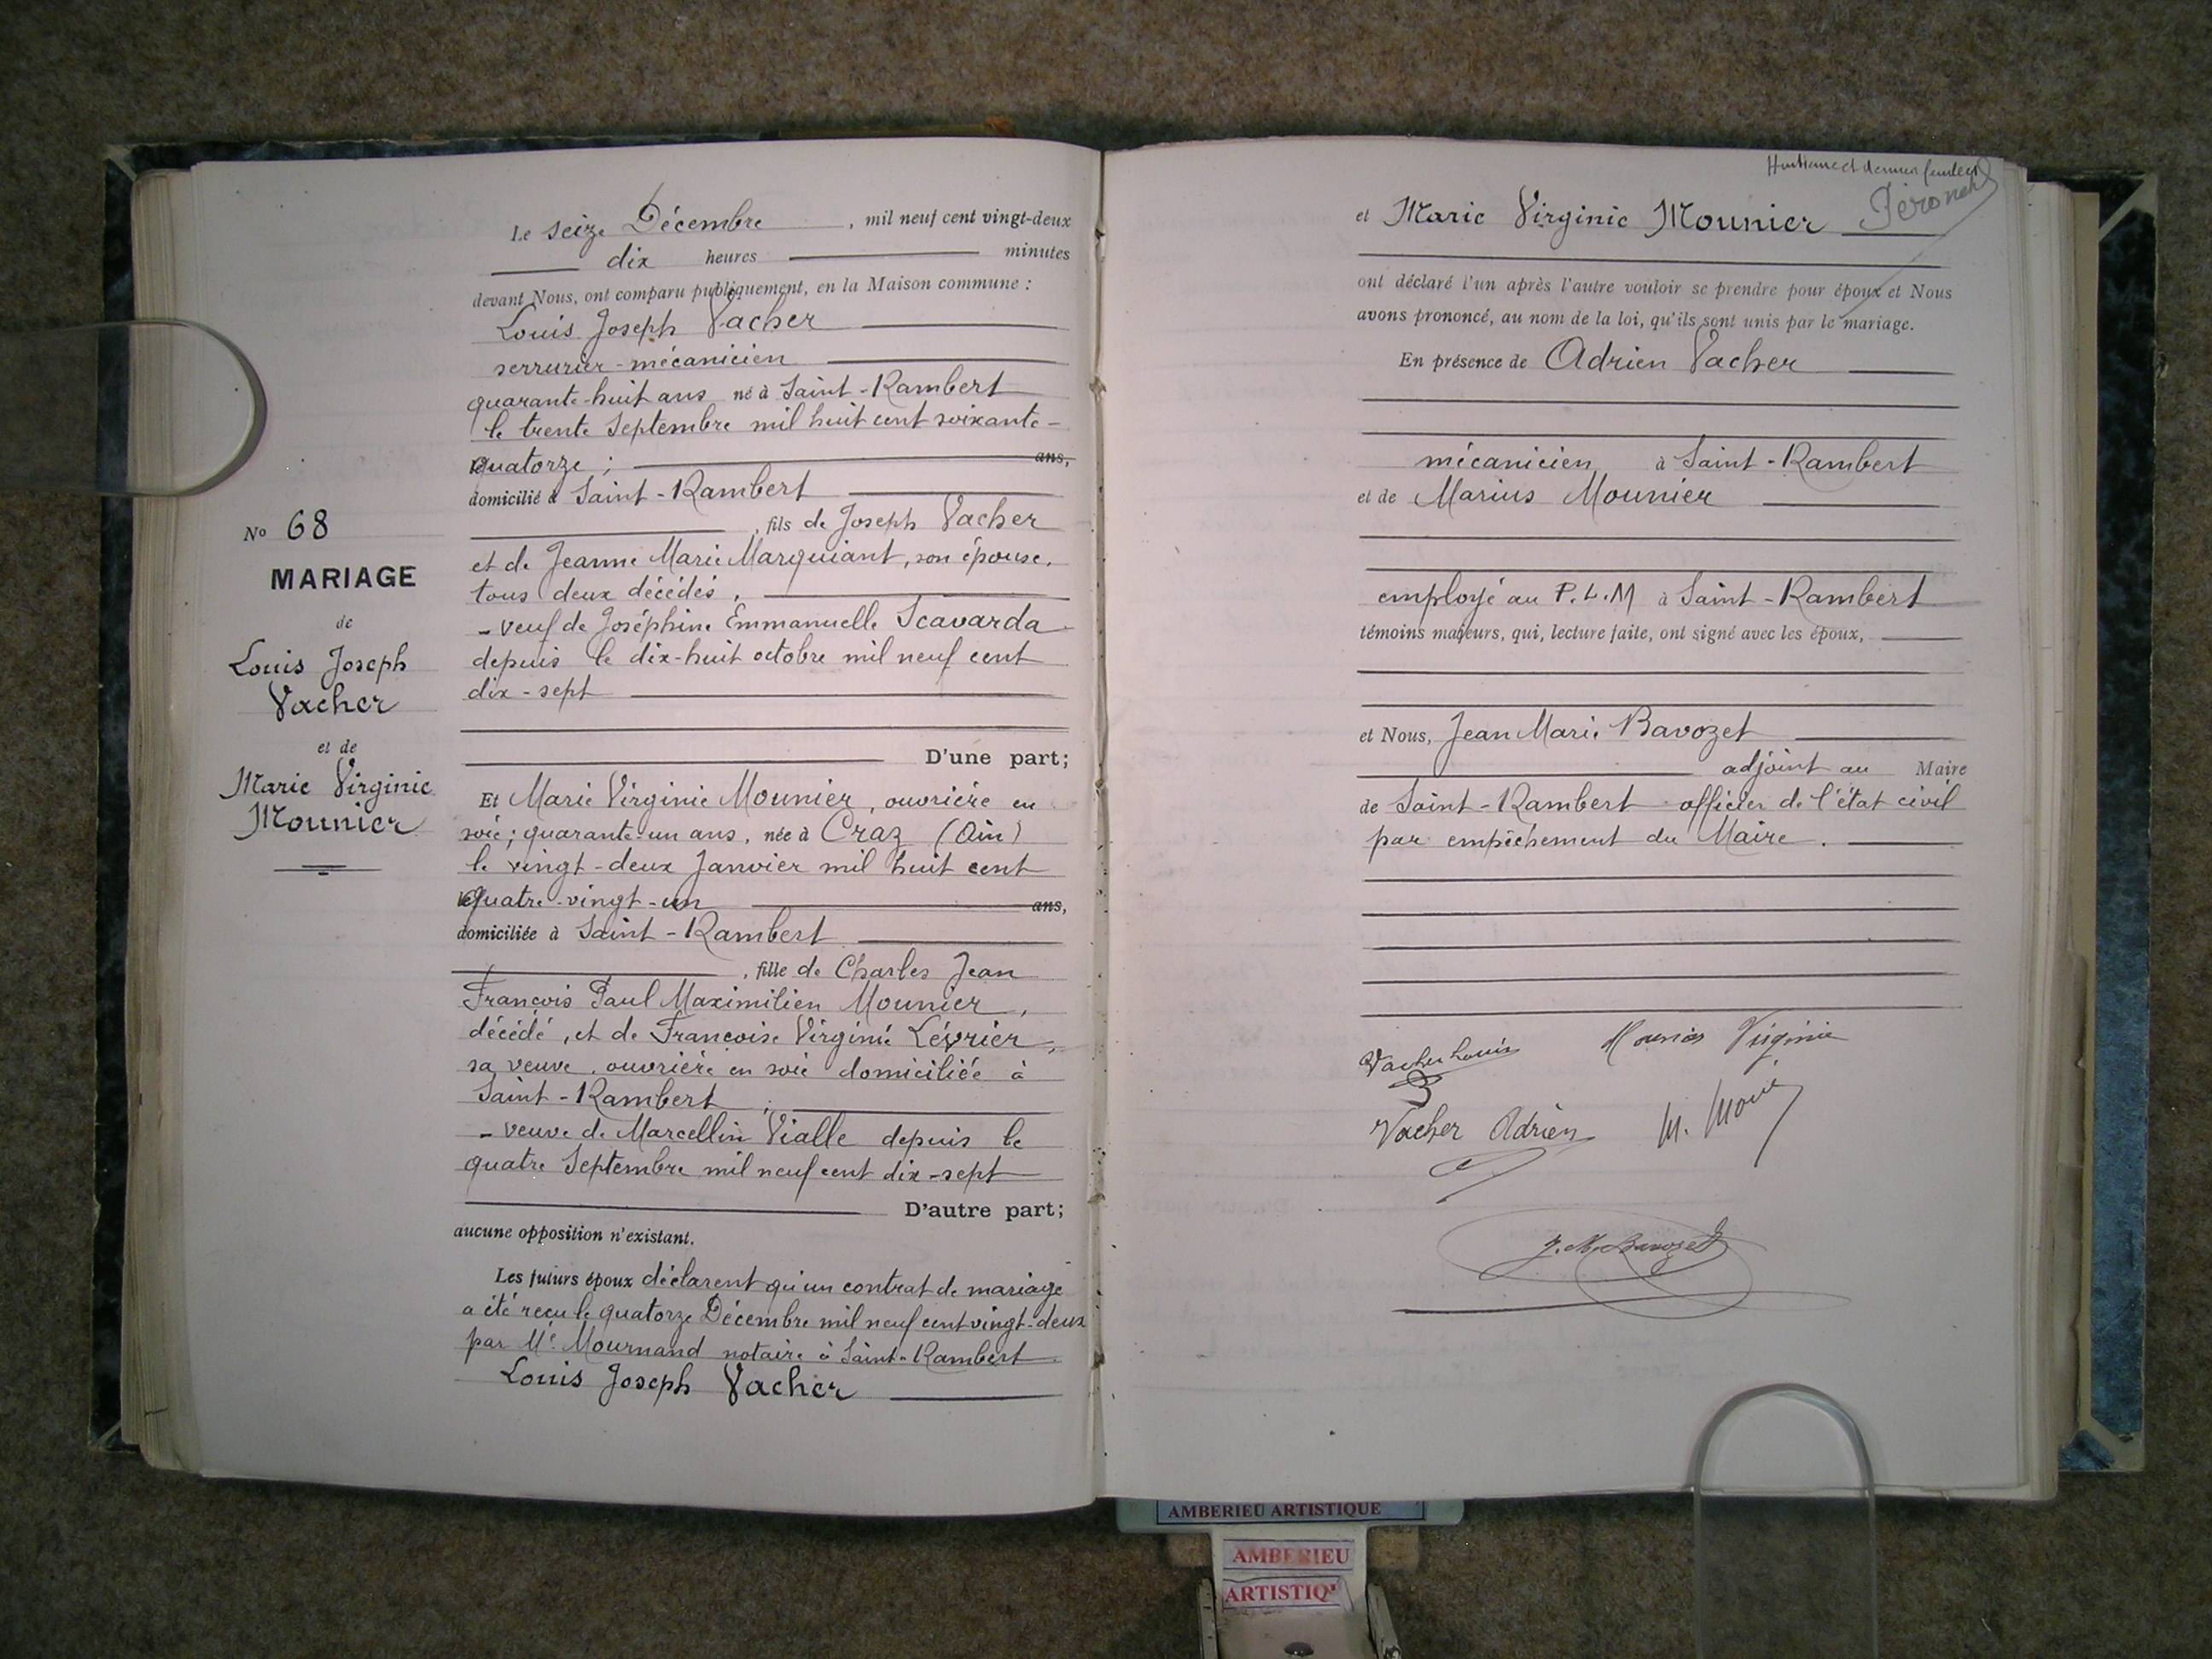 Le seize Décembre, mil neuf cent vingt-deux
dix heures minutes
devant Nous, ont comparu publiquement, en la Maison commune :
Louis Joseph Vacher
serrurier-mécanicien
quarante-huit ans né à Saint-Rambert
le trente Septembre mil huit cent soixante-
quatorze ; ans,
domicilié à Saint-Rambert
, fils de Joseph Vacher
et de Jeanne Marie Marquiant, son épouse,
tous deux décédés,
- veuf de Joséphine Emmanuelle Scavarda
depuis le dix-huit octobre mil neuf cent
dix-sept
D'une part;
No 68
MARIAGE
de
Louis Joseph
Vacher
et de
Marie Virginie
Mounier
Et Marie Virginie Mounier, ouvrière en
soie; quarante-un ans, née à Craz (Ain)
le vingt-deux Janvier mil huit cent
quatre-vingt-un ans,
domiciliée à Saint-Rambert
, fille de Charles Jean
François Paul Maximilien Mounier,
décédé, et de Françoise Virginie Lévrier,
sa veuve, ouvrière en soie domiciliée à
Saint-Rambert ;
- veuve de Marcellin Vialle depuis le
quatre Septembre mil neuf cent dix-sept
D'autre part;
aucune opposition n'existant.
Les futurs époux déclarent qu'un contrat de mariage
a été reçu le quatorze Décembre mil neuf cent vingt-deux
par Me Mournand notaire à Saint-Rambert
Louis Joseph Vacher
Péronet
et Marie Virginie Mounier
ont déclaré l'un après l'autre vouloir se prendre pour époux et Nous
avons prononcé, au nom de la loi, qu'ils sont unis par le mariage.
En présence de Adrien Vacher
mécanicien à Saint-Rambert
et de Marius Mounier
employé au P.L.M à Saint-Rambert
témoins majeurs, qui, lecture faite, ont signé avec les époux,
et Nous, Jean Marie Bavozet
adjoint au Maire
de Saint-Rambert officier de l'état civil
par empêchement du Maire.
Vacher Louis Mounier Virginie
Vacher Adrien M. Mounié
J. M. Bavozet
AMBERIEU ARTISTIQUE
AMBERIEU
ARTISTIQ